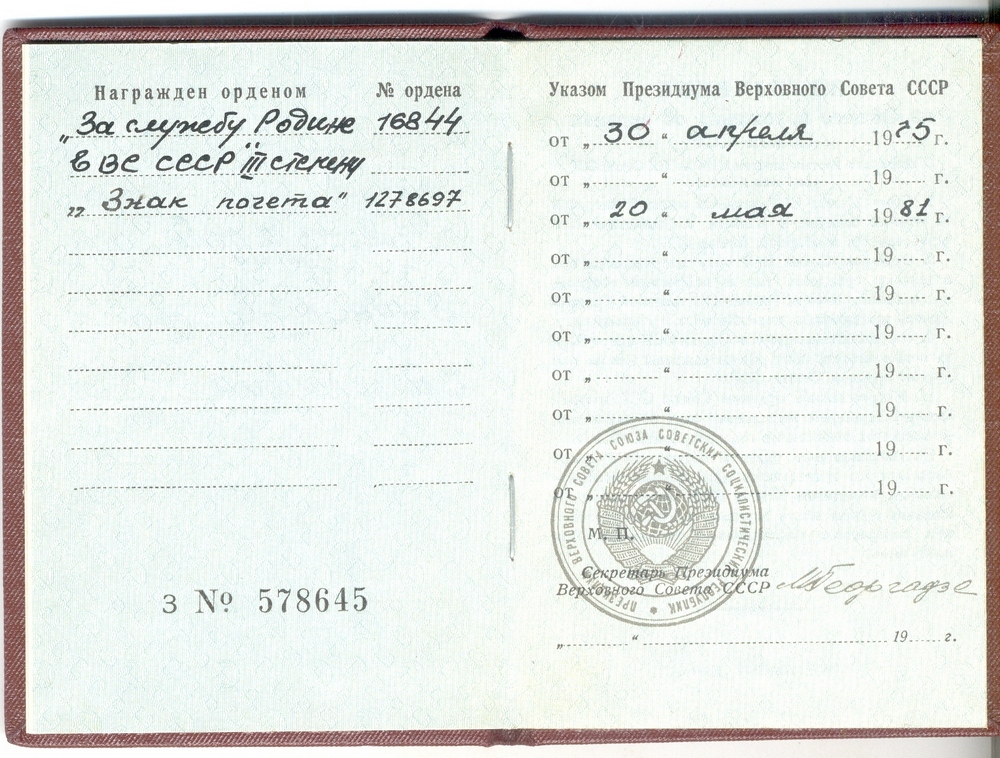 Награжден орденом № ордена
„За службу Родине 16844
в ВС СССР" III степени
„Знак почета" 1278697
З № 578645
Указом Президиума Верховного Совета СССР
от „ 30 “ апреля 1975 г.
от „ “ 19 г.
от „ 20 “ мая 1981 г.
от „ “ 19 г.
от „ “ 19 г.
от „ “ 19 г.
от „ “ 19 г.
от „ “ 19 г.
от „ “ 19 г.
от „ “ 19 г.
ПРЕЗИДИУМ ВЕРХОВНОГО СОВЕТА СОЮЗА СОВЕТСКИХ СОЦИАЛИСТИЧЕСКИХ РЕСПУБЛИК
М. П.
Секретарь Президиума
Верховного Совета СССР МГеоргадзе
„ “ 19 г.